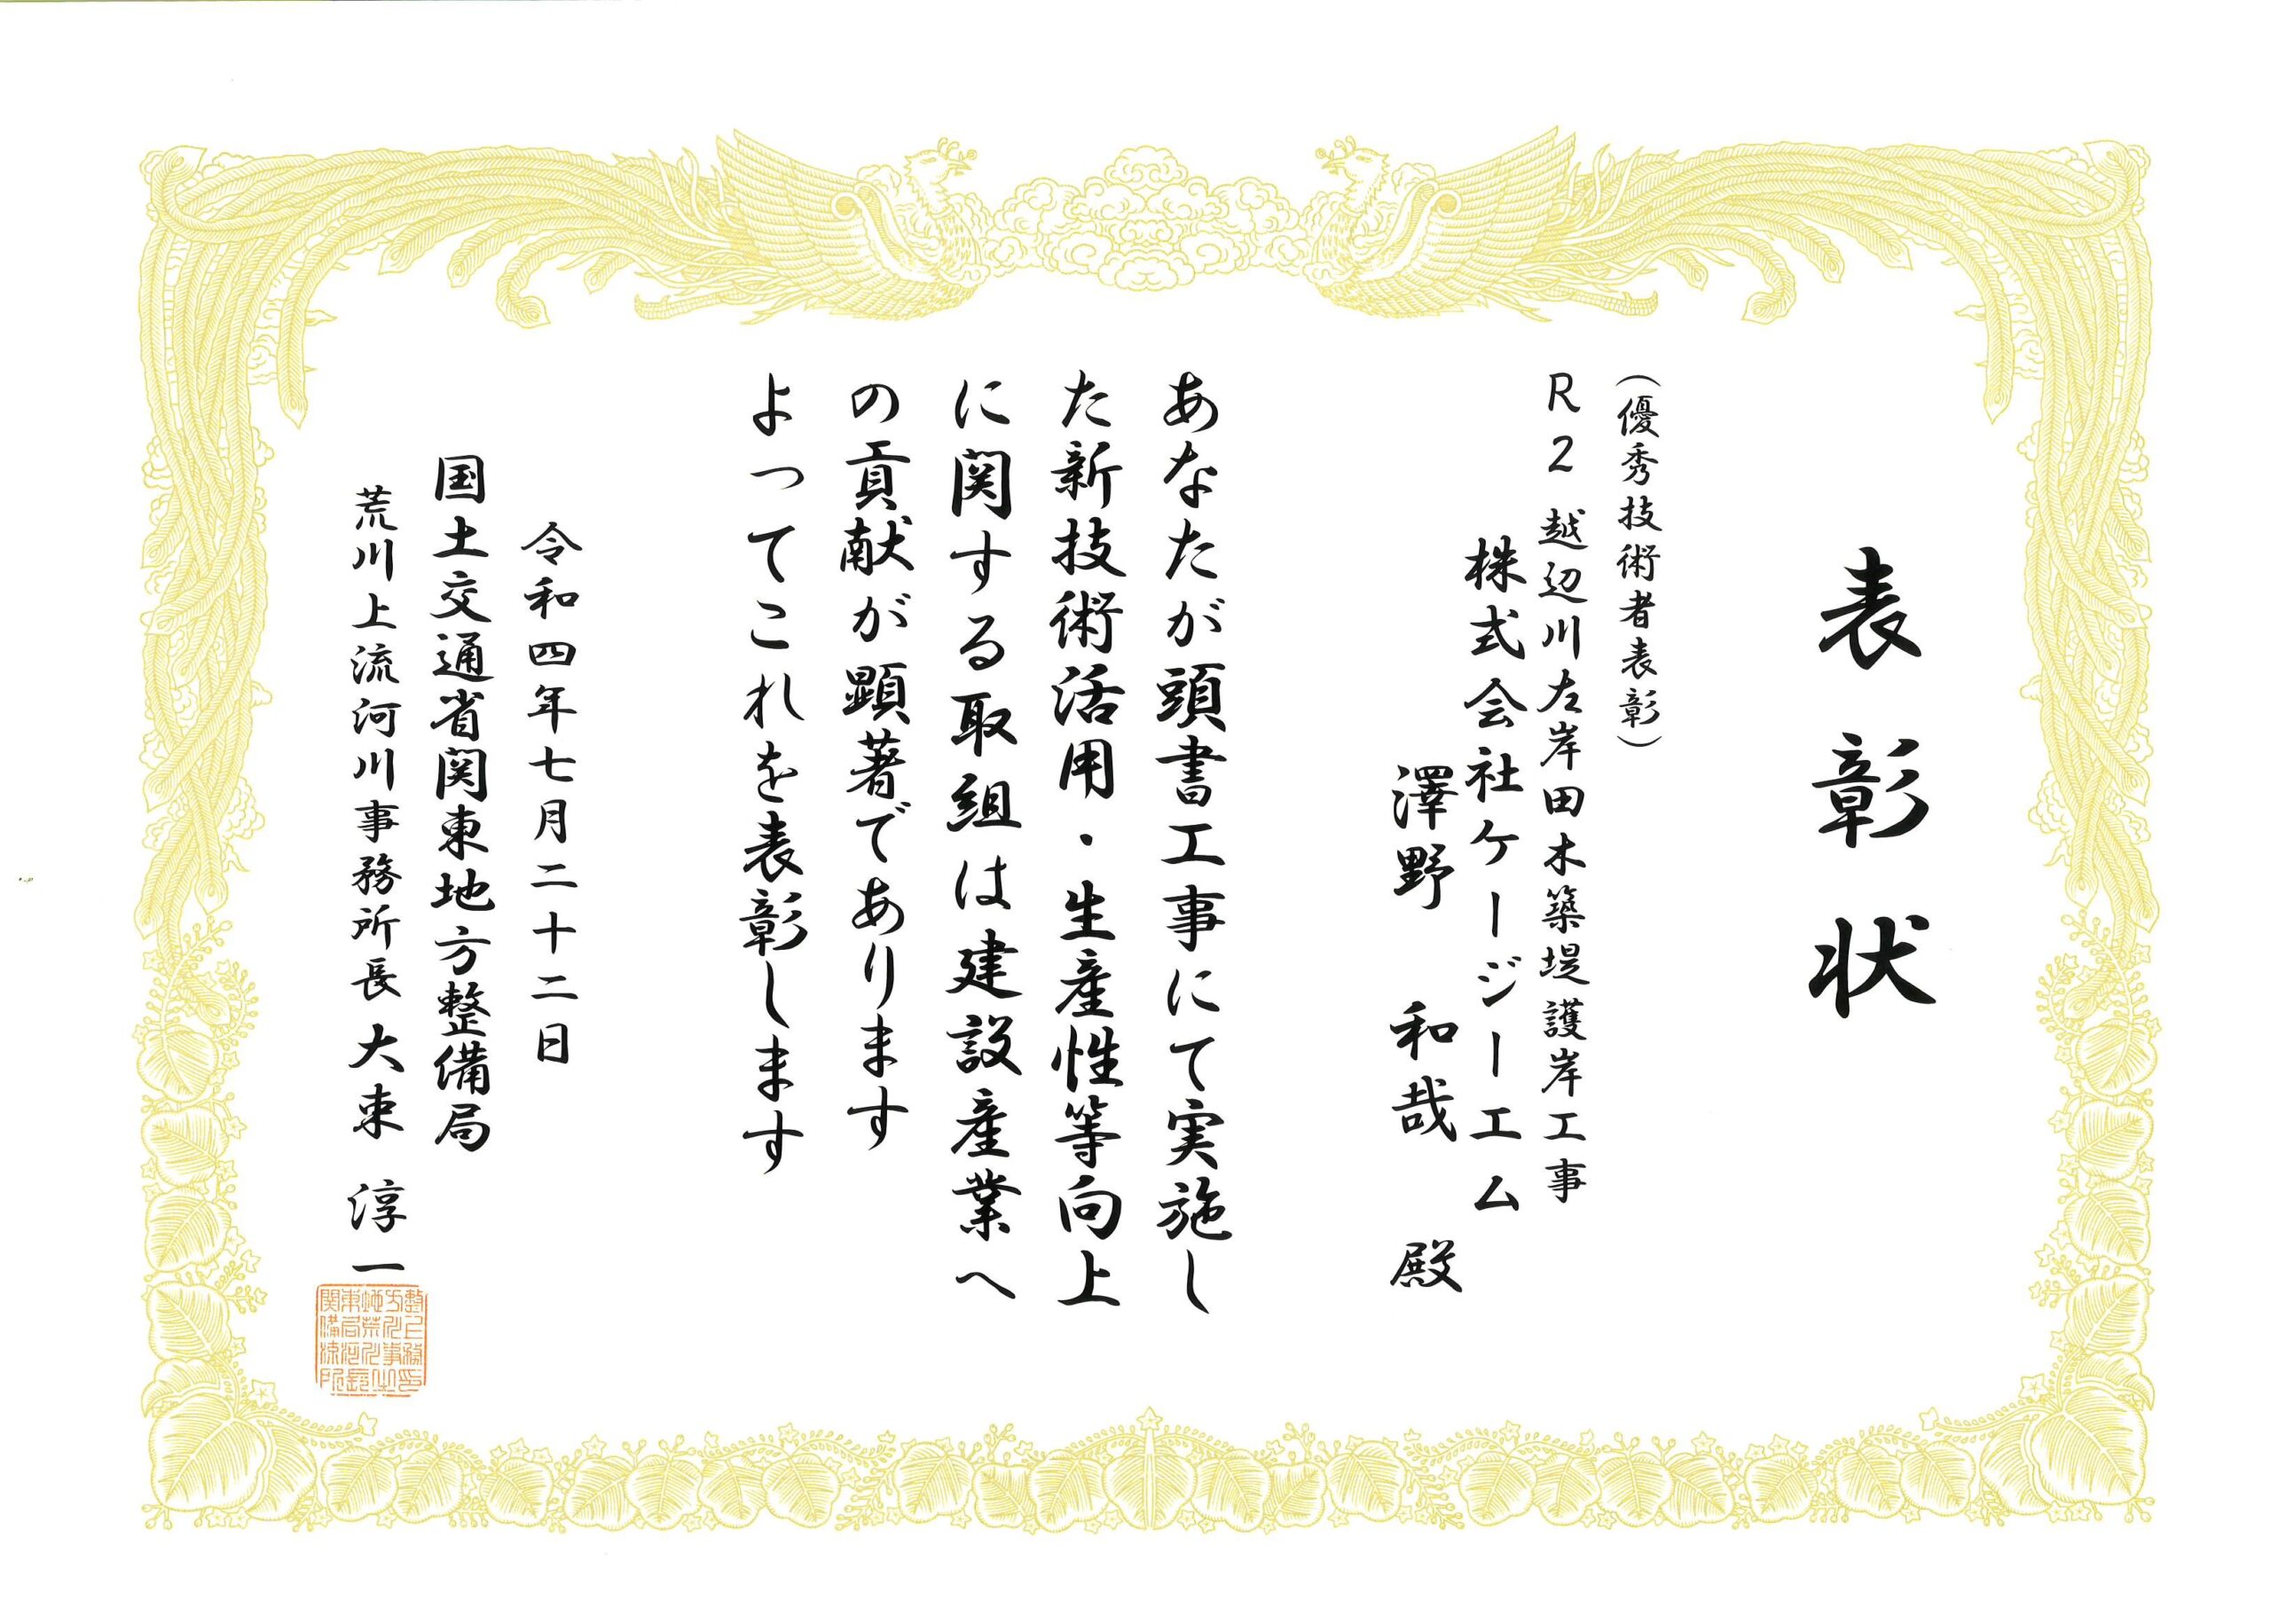 表彰状
（優秀技術者表彰）
R2 越辺川左岸田木築堤護岸工事
株式会社ケージーエム
澤野 和哉 殿
あなたが頭書工事にて実施し
た新技術活用・生産性等向上
に関する取組は建設産業へ
の貢献が顕著であります
よってこれを表彰します
令和四年七月二十二日
国土交通省関東地方整備局
荒川上流河川事務所長 大束 淳一